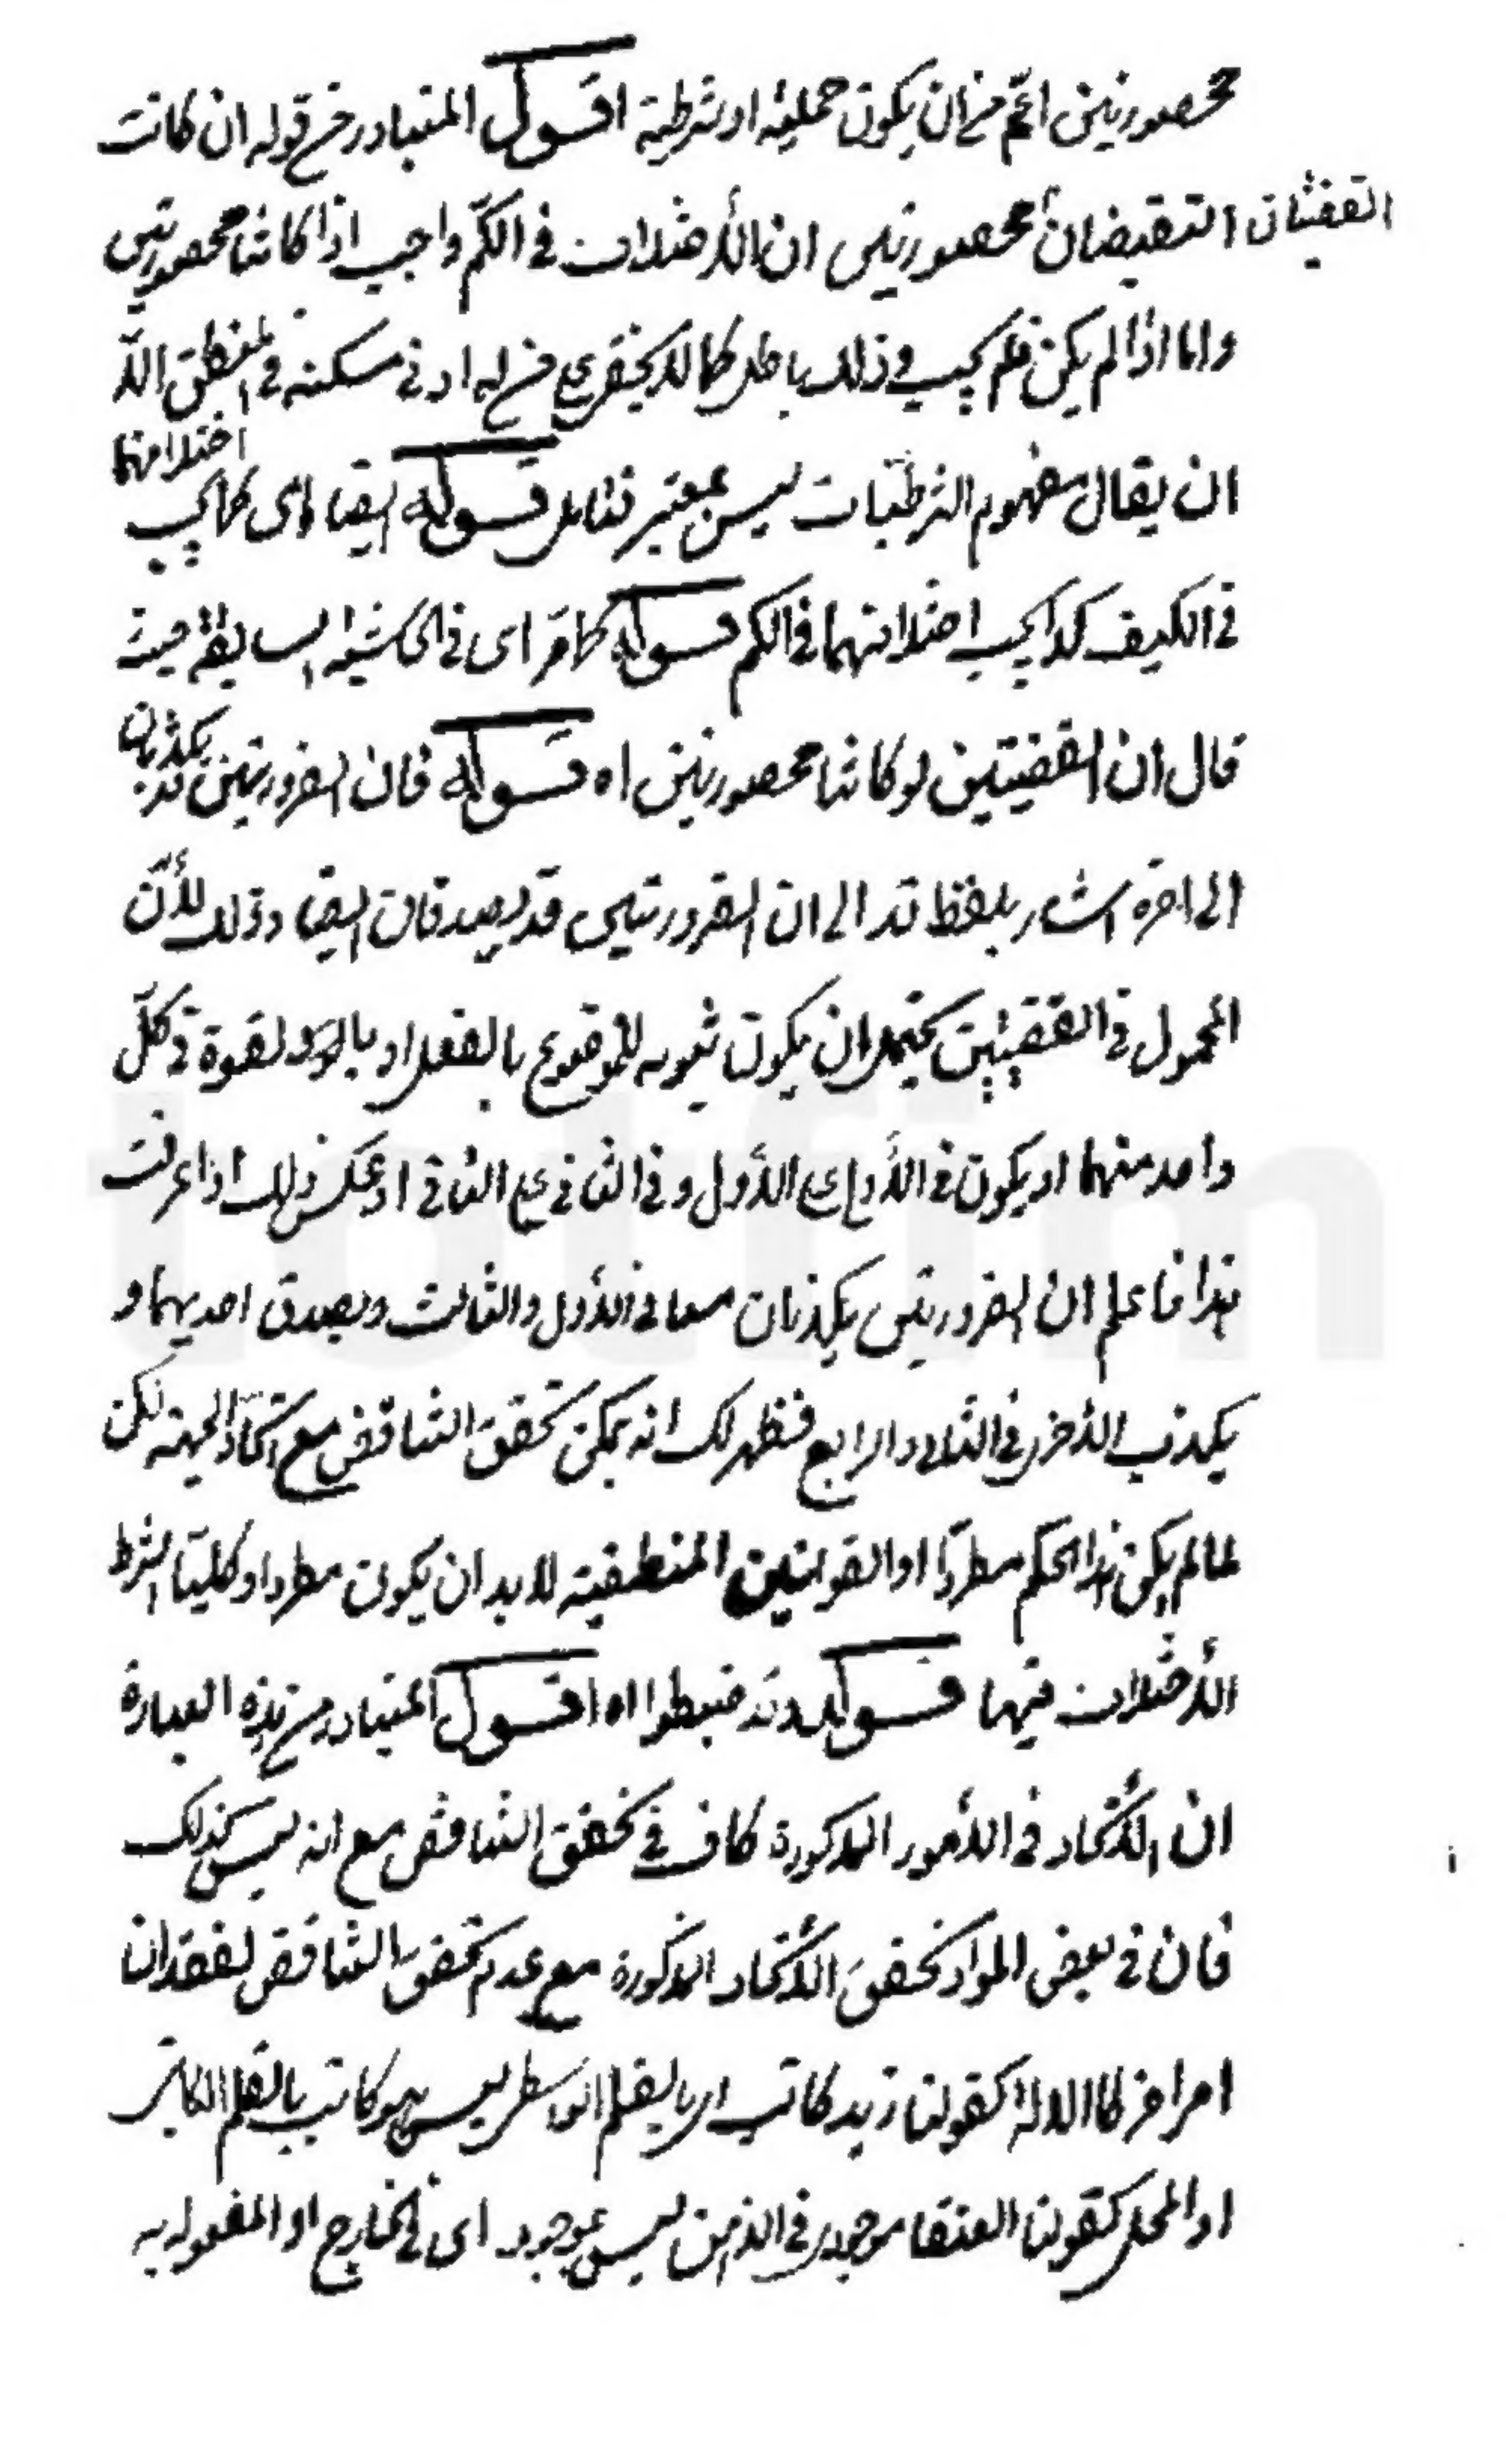 محصورتين اعم من ان يكون حملية او شرطية اقول المتبادر من قوله ان كانت
القضيتان النقيضان محصورتين ان الأختلاف في الكم واجب اذا كانتا محصورتين
واما اذا لم يكن فلم يجب وذلك باطل كما لا يخفى على من له ادنى مسكة في المنطق الّا
ان يقال مفهوم الشرطيات ليس بمعتبر فتأمل قوله ايضا اى كما يجب اختلافهما
في الكيف كذا يجب اختلافهما في الكم قوله كما مر اى في الحاشية السابقة حيث
قال ان القضيتين لو كانتا محصورتين اه قوله فان الضرورتين قد يكذبان
الى اخره اشار بلفظ قد الى ان الضرورتين قد يصدقان ايضا وذلك لأنّ
المحمول في القضيتين يحتمل ان يكون ثبوته للموضوع بالفعل او بالقوة في كلّ
واحد منهما او يكون في الأول على الأول وفي الثاني على الثاني او عكس ذلك اذا عرفت
هذا فاعلم ان الضرورتين يكذبان معا في الأول والثالث ويصدق احديهما و
يكذب الأخرى في الثانى والرابع فظهر لك انه يمكن تحقق التناقض مع اتحاد الجهة لكن
لما لم يكن هذا الحكم مطردا او القوانين المنطقية لا بد ان يكون مطردا وكليا اشترط
الأختلاف فيها قوله وقد ضبطوا اه اقول المتبادر من هذه العبارة
ان الأتحاد في الأمور المذكورة كاف في تحقق التناقض مع انه ليس كذلك
فان في بعض المواد تحقق الأتحاد المذكورة مع عدم تحقق التناقض لفقدان
امر اخر كالالة كقولنا زيد كاتب اى بالقلم الواسطى ليس هو كاتب بالقلم
او المحل كقولنا العنقا موجود في الذهن ليس بموجود اى في الخارج او المفعول به